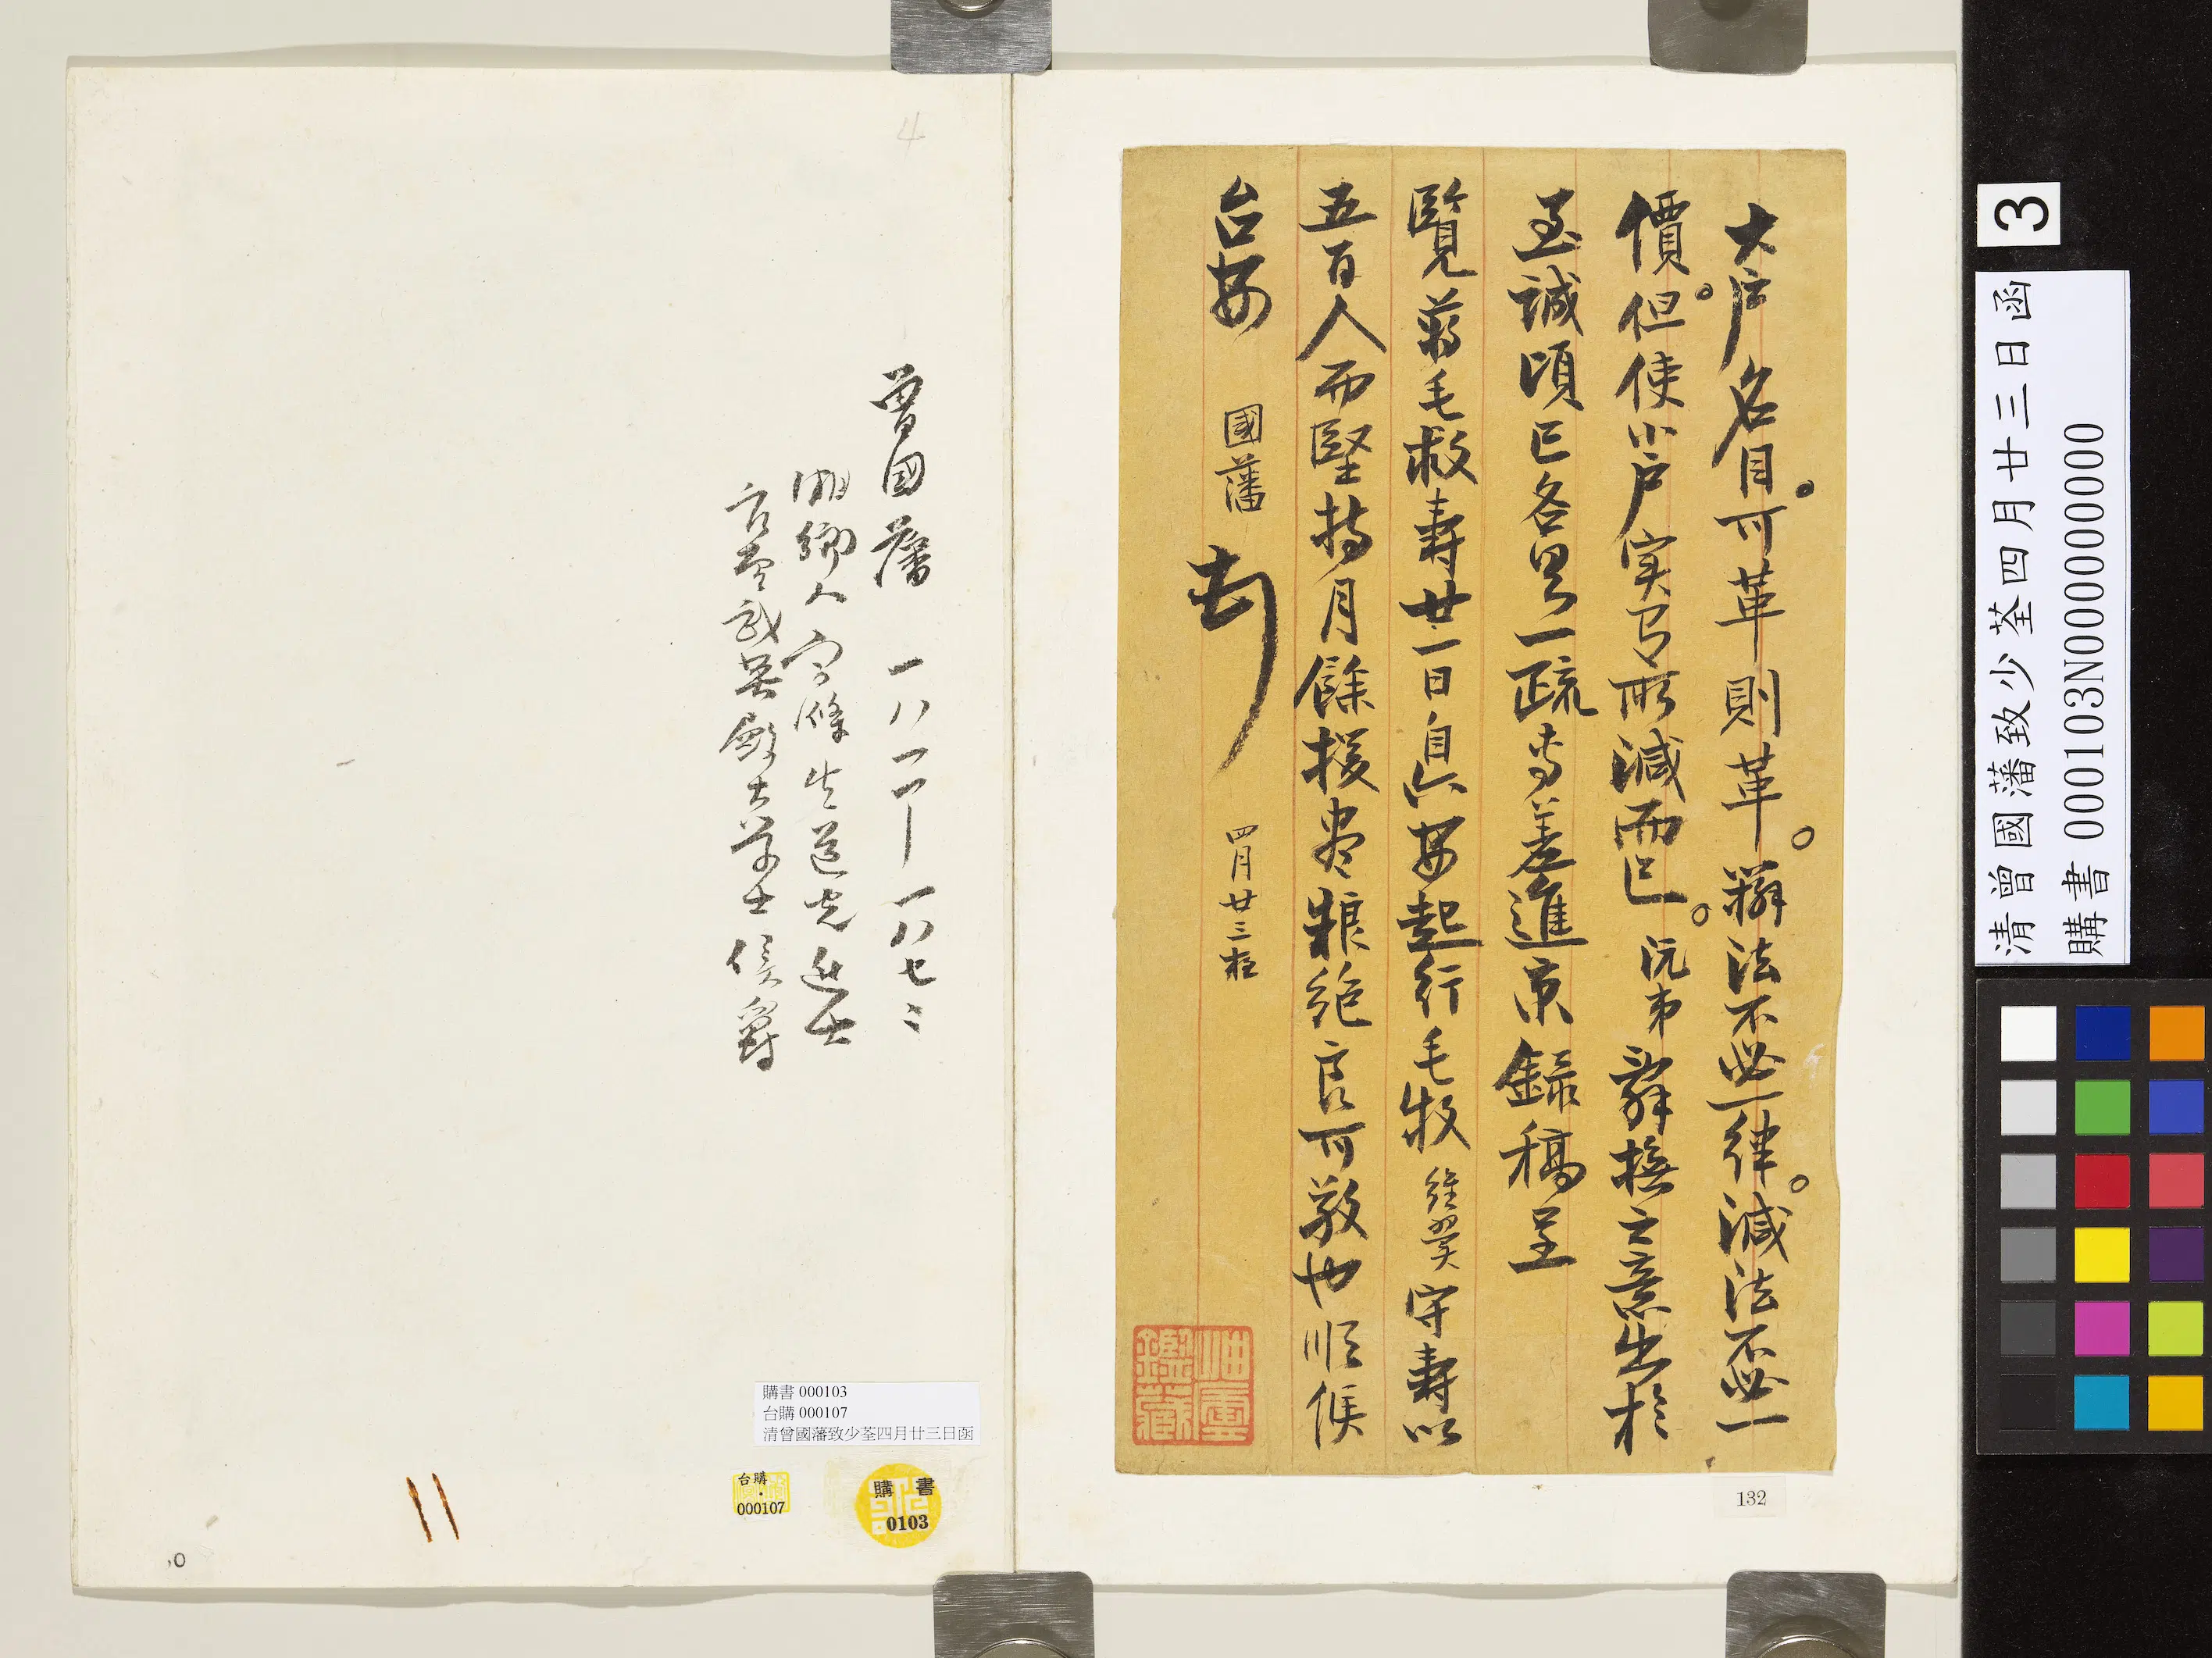 大戶名目可革則革辦法不必一律減法不必一
價但使小戶实有所減而已沅弟辭撫之意出於
至誠頃已各具一疏專差進京錄稿呈
覽蔣毛救壽廿一日自六安起行毛牧維翼守壽以
五百人而堅持月餘援盡粮絕良可敬也順候
台安 國藩 頓 四月廿三夜
鑑藏
132
曾國藩 一八一一—一八七二
湘鄉人字滌生道光進士
官至武英殿大學士侯爵
4
購書 000103
台購 000107
清曾國藩致少荃四月廿三日函
台購
000107
購書
0103
3
清曾國藩致少荃四月廿三日函
購書 000103N000000000